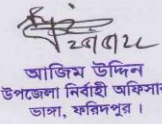 আজিম উদ্দিন
উপজেলা নির্বাহী অফিসার
ভাঙ্গা, ফরিদপুর।